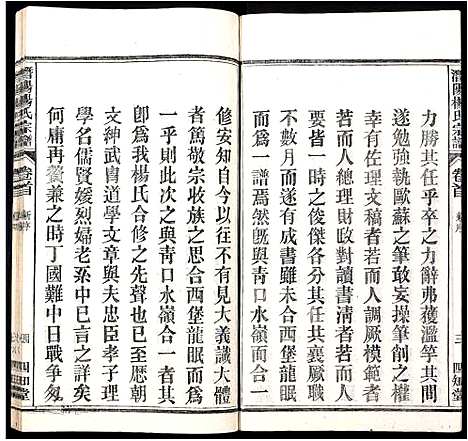 潛陽楊氏宗譜
卷首
新序
三
四知堂
力勝其任乎卒之力辭弗獲濫竽其中
遂勉強執歐蘇之筆敢妄操筆削之權
幸有佐理文稿者有人調厥模範者有
而有人總理財政對讀書清者有而有人
皆君一時之俊傑各分其任共襄厥事
而數月遂有成書雖未若合西堡龍眠
而為一譜焉然既與靑口水嶺而合一
修安知自今以往不有見大義識大體
者篤敬宗收族之思合西堡龍眠而為
一乎則此次之與靑口水嶺合一者
卽為我楊氏合修之先聲也已至於
文紳武甯道學文章與夫忠臣孝子理
學名儒賢媛烈婦老泉中已言之詳矣
何庸再贅兼之時丁國難中日戰爭匆
潛陽楊氏宗譜
卷首
新序
四
四知堂